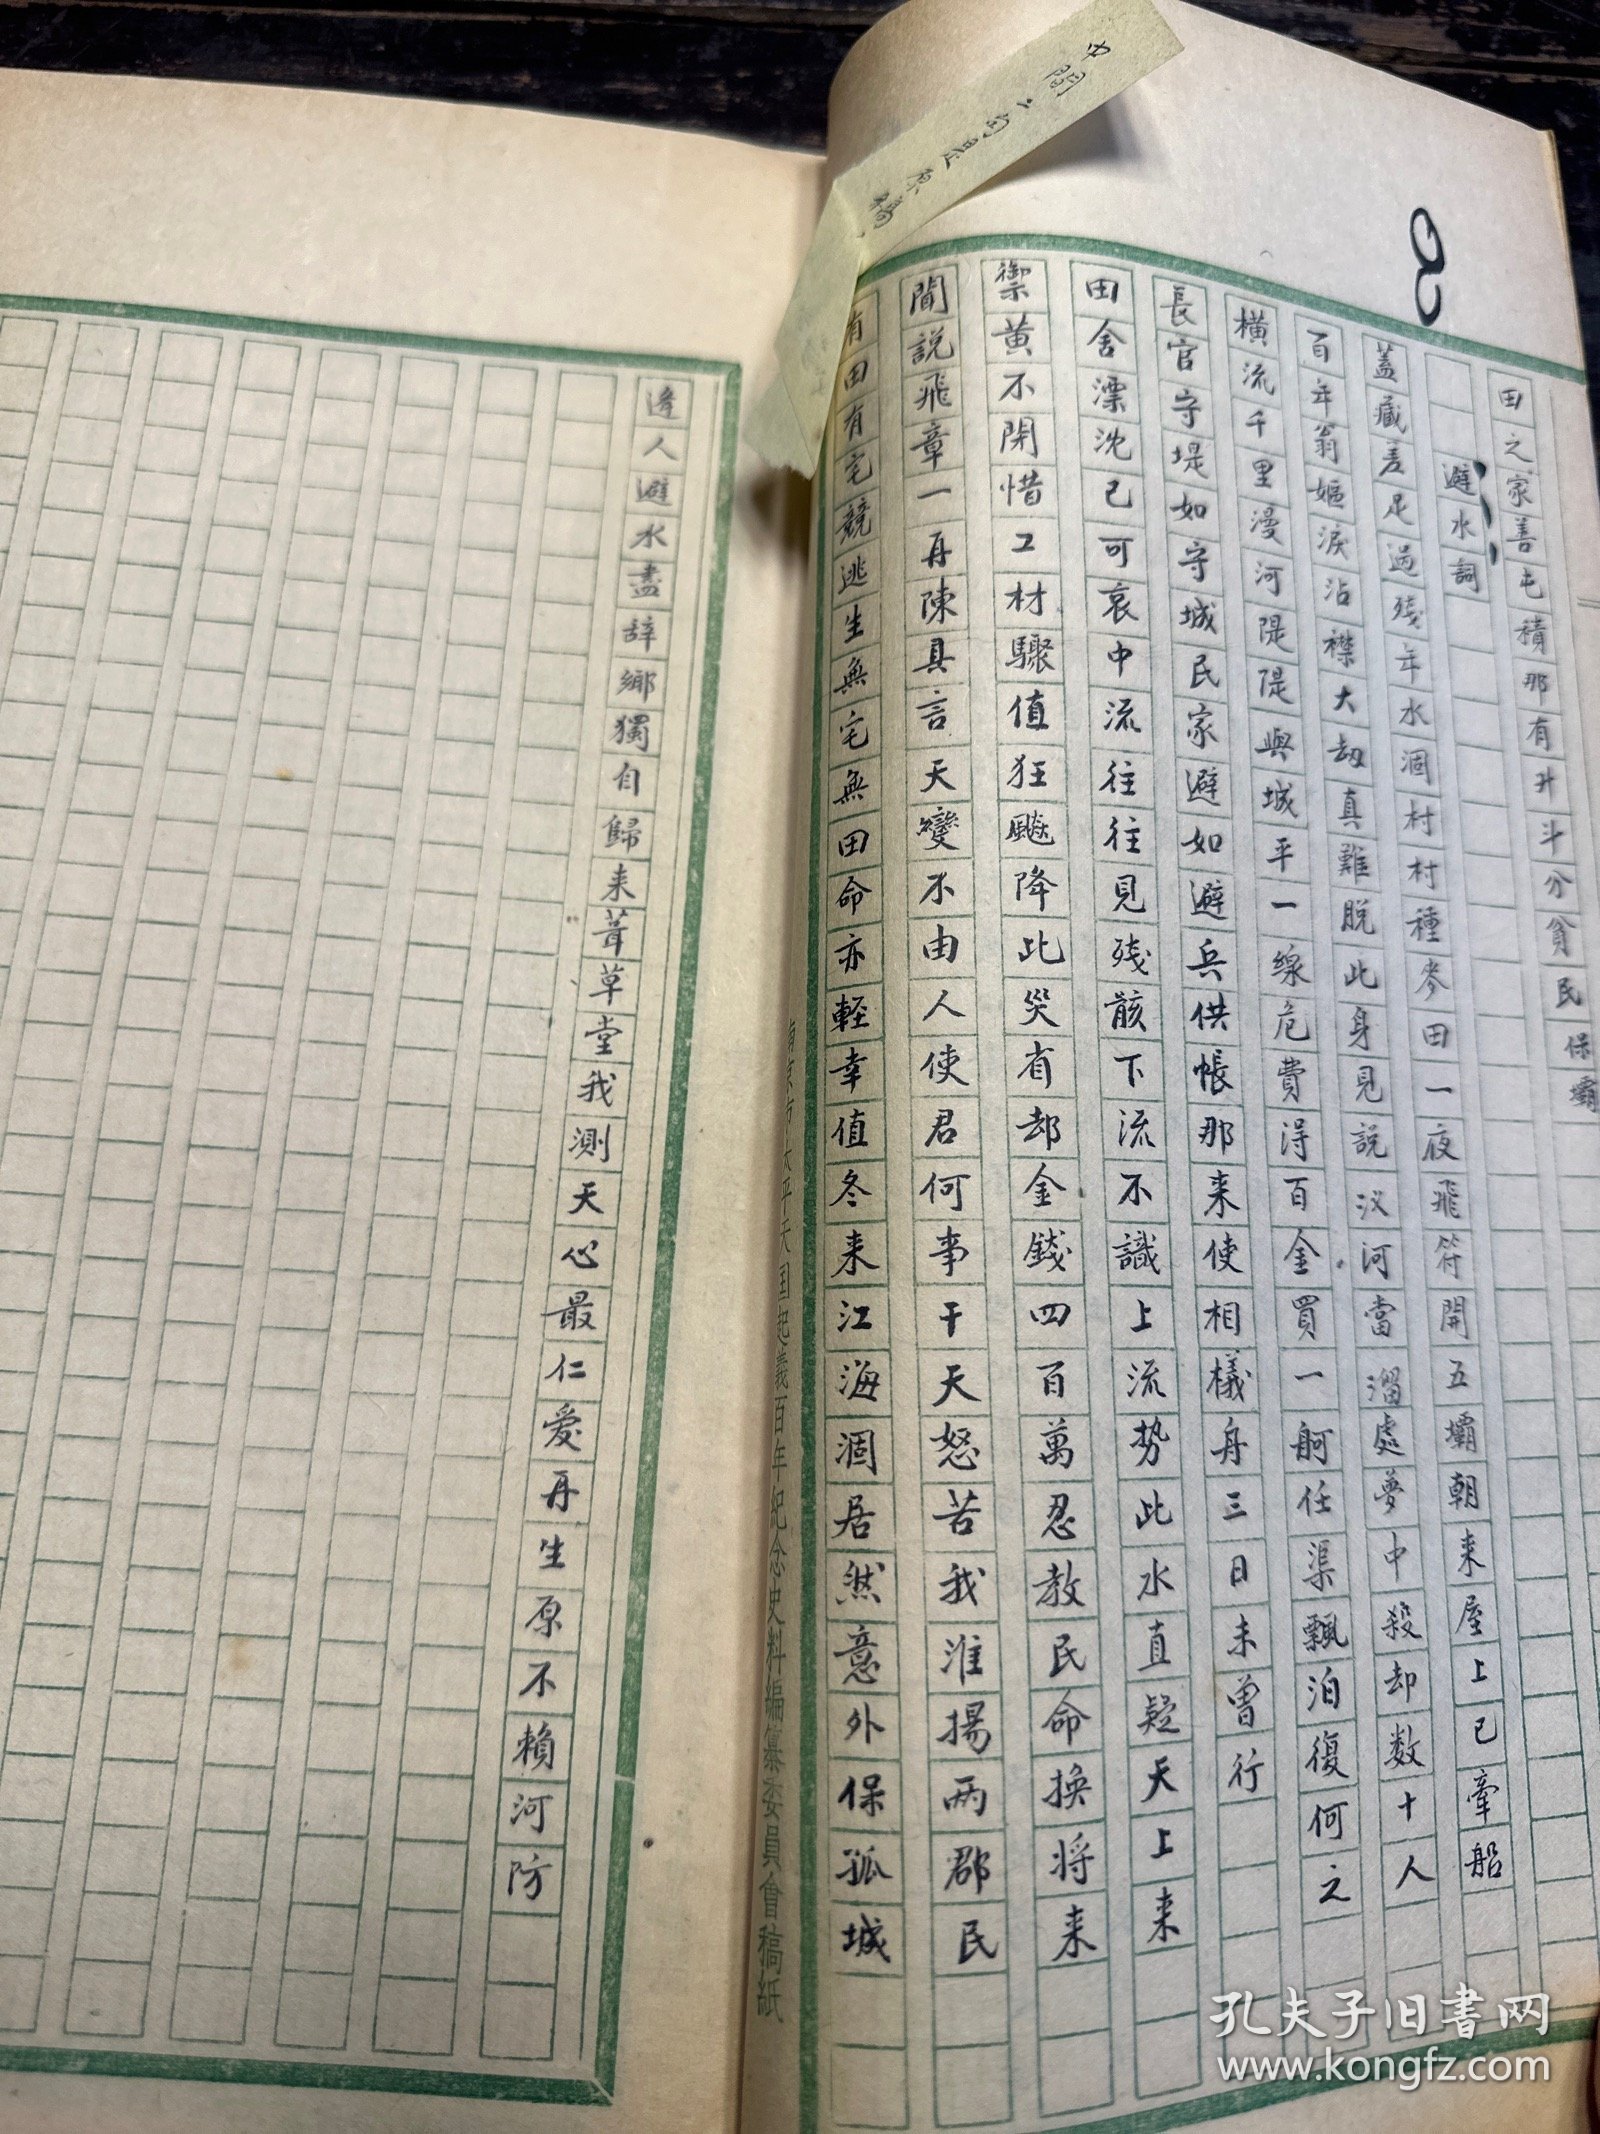 田之家善屯積那有升斗分貧民保壩
避水詞
蓋藏差足過殘年水涸村村種麥田一夜飛符開五壩朝来屋上已牽船
百年翁嫗淚沾襟大劫真難脫此身見說汊河當溜處夢中殺却数十人
橫流千里漫河隄隄與城平一線危費得百金買一舸任渠飄泊復何之
長官守堤如守城民家避如避兵供帳那来使相檥舟三日未曾行
田舍漂沈已可哀中流往往見殘骸下流不識上流势此水直疑天上来
禦黃不閉惜工材驟值狂飈降此災省却金錢四百萬忍教民命換將来
聞說飛章一再陳具言天變不由人使君何事干天怒苦我淮揚兩郡民
有田有宅競逃生無宅無田命亦輕幸值冬来江海涸居然意外保孤城
逢人避水盡辞鄉獨自歸来葺草堂我測天心最仁爱再生原不賴河防
太平天国起義百年紀念史料編纂委員會稿紙
孔夫子旧書网
www.kongfz.com